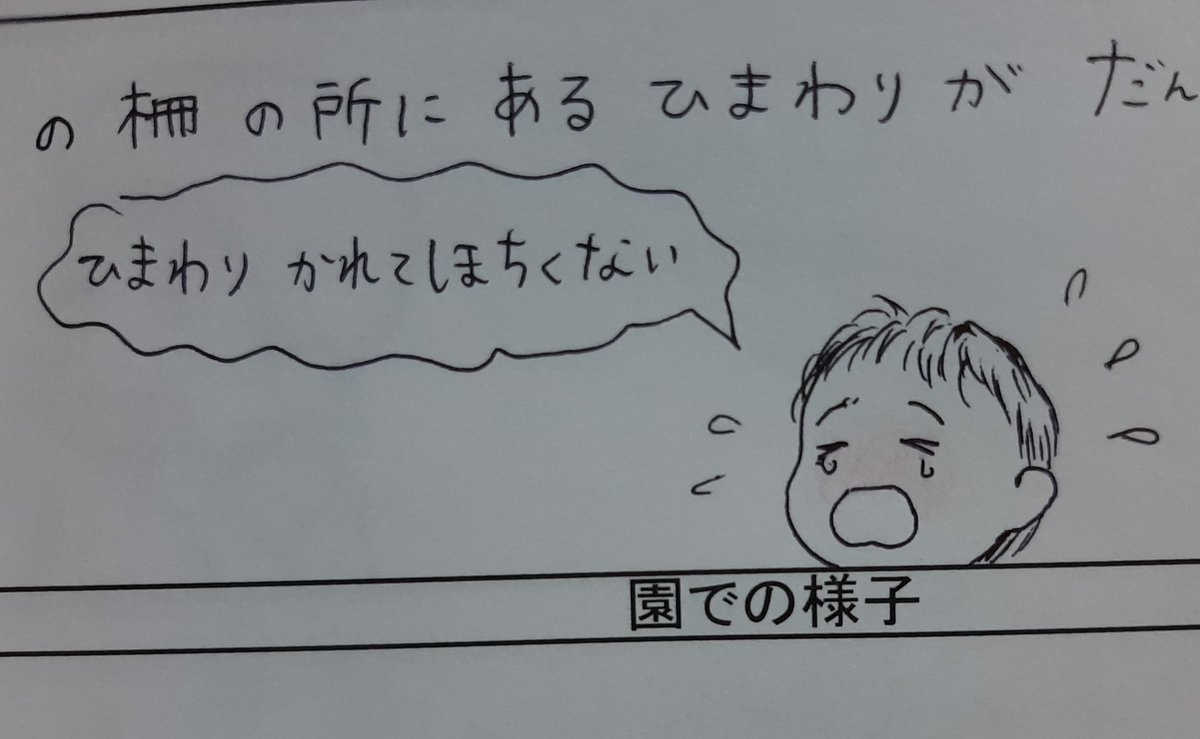 の柵の所にあるひまわりがだん
ひまわりかれてしほちくない
園での様子